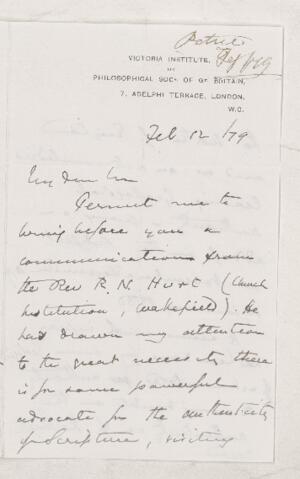 Petrie
Feb/79
VICTORIA INSTITUTE,
OR
PHILOSOPHICAL SOCY. OF GT BRITAIN,
7. ADELPHI TERRACE, LONDON,
W.C.
Feb 12/79
My dear Sir
Permit me to
bring before you a
communication from
the Rev R. N. Hurt (Church
Institution, Wakefield). He
has drawn my attention
to the great necessity there
is for some powerful
advocate for the authenticity
of Scripture, visiting